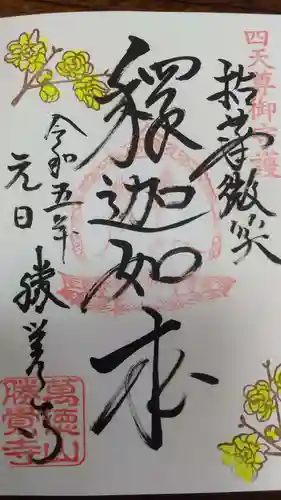 四天尊御守護
拈華微笑
釋迦如来
令和五年
元日
勝覚寺
萬徳山
勝覚寺